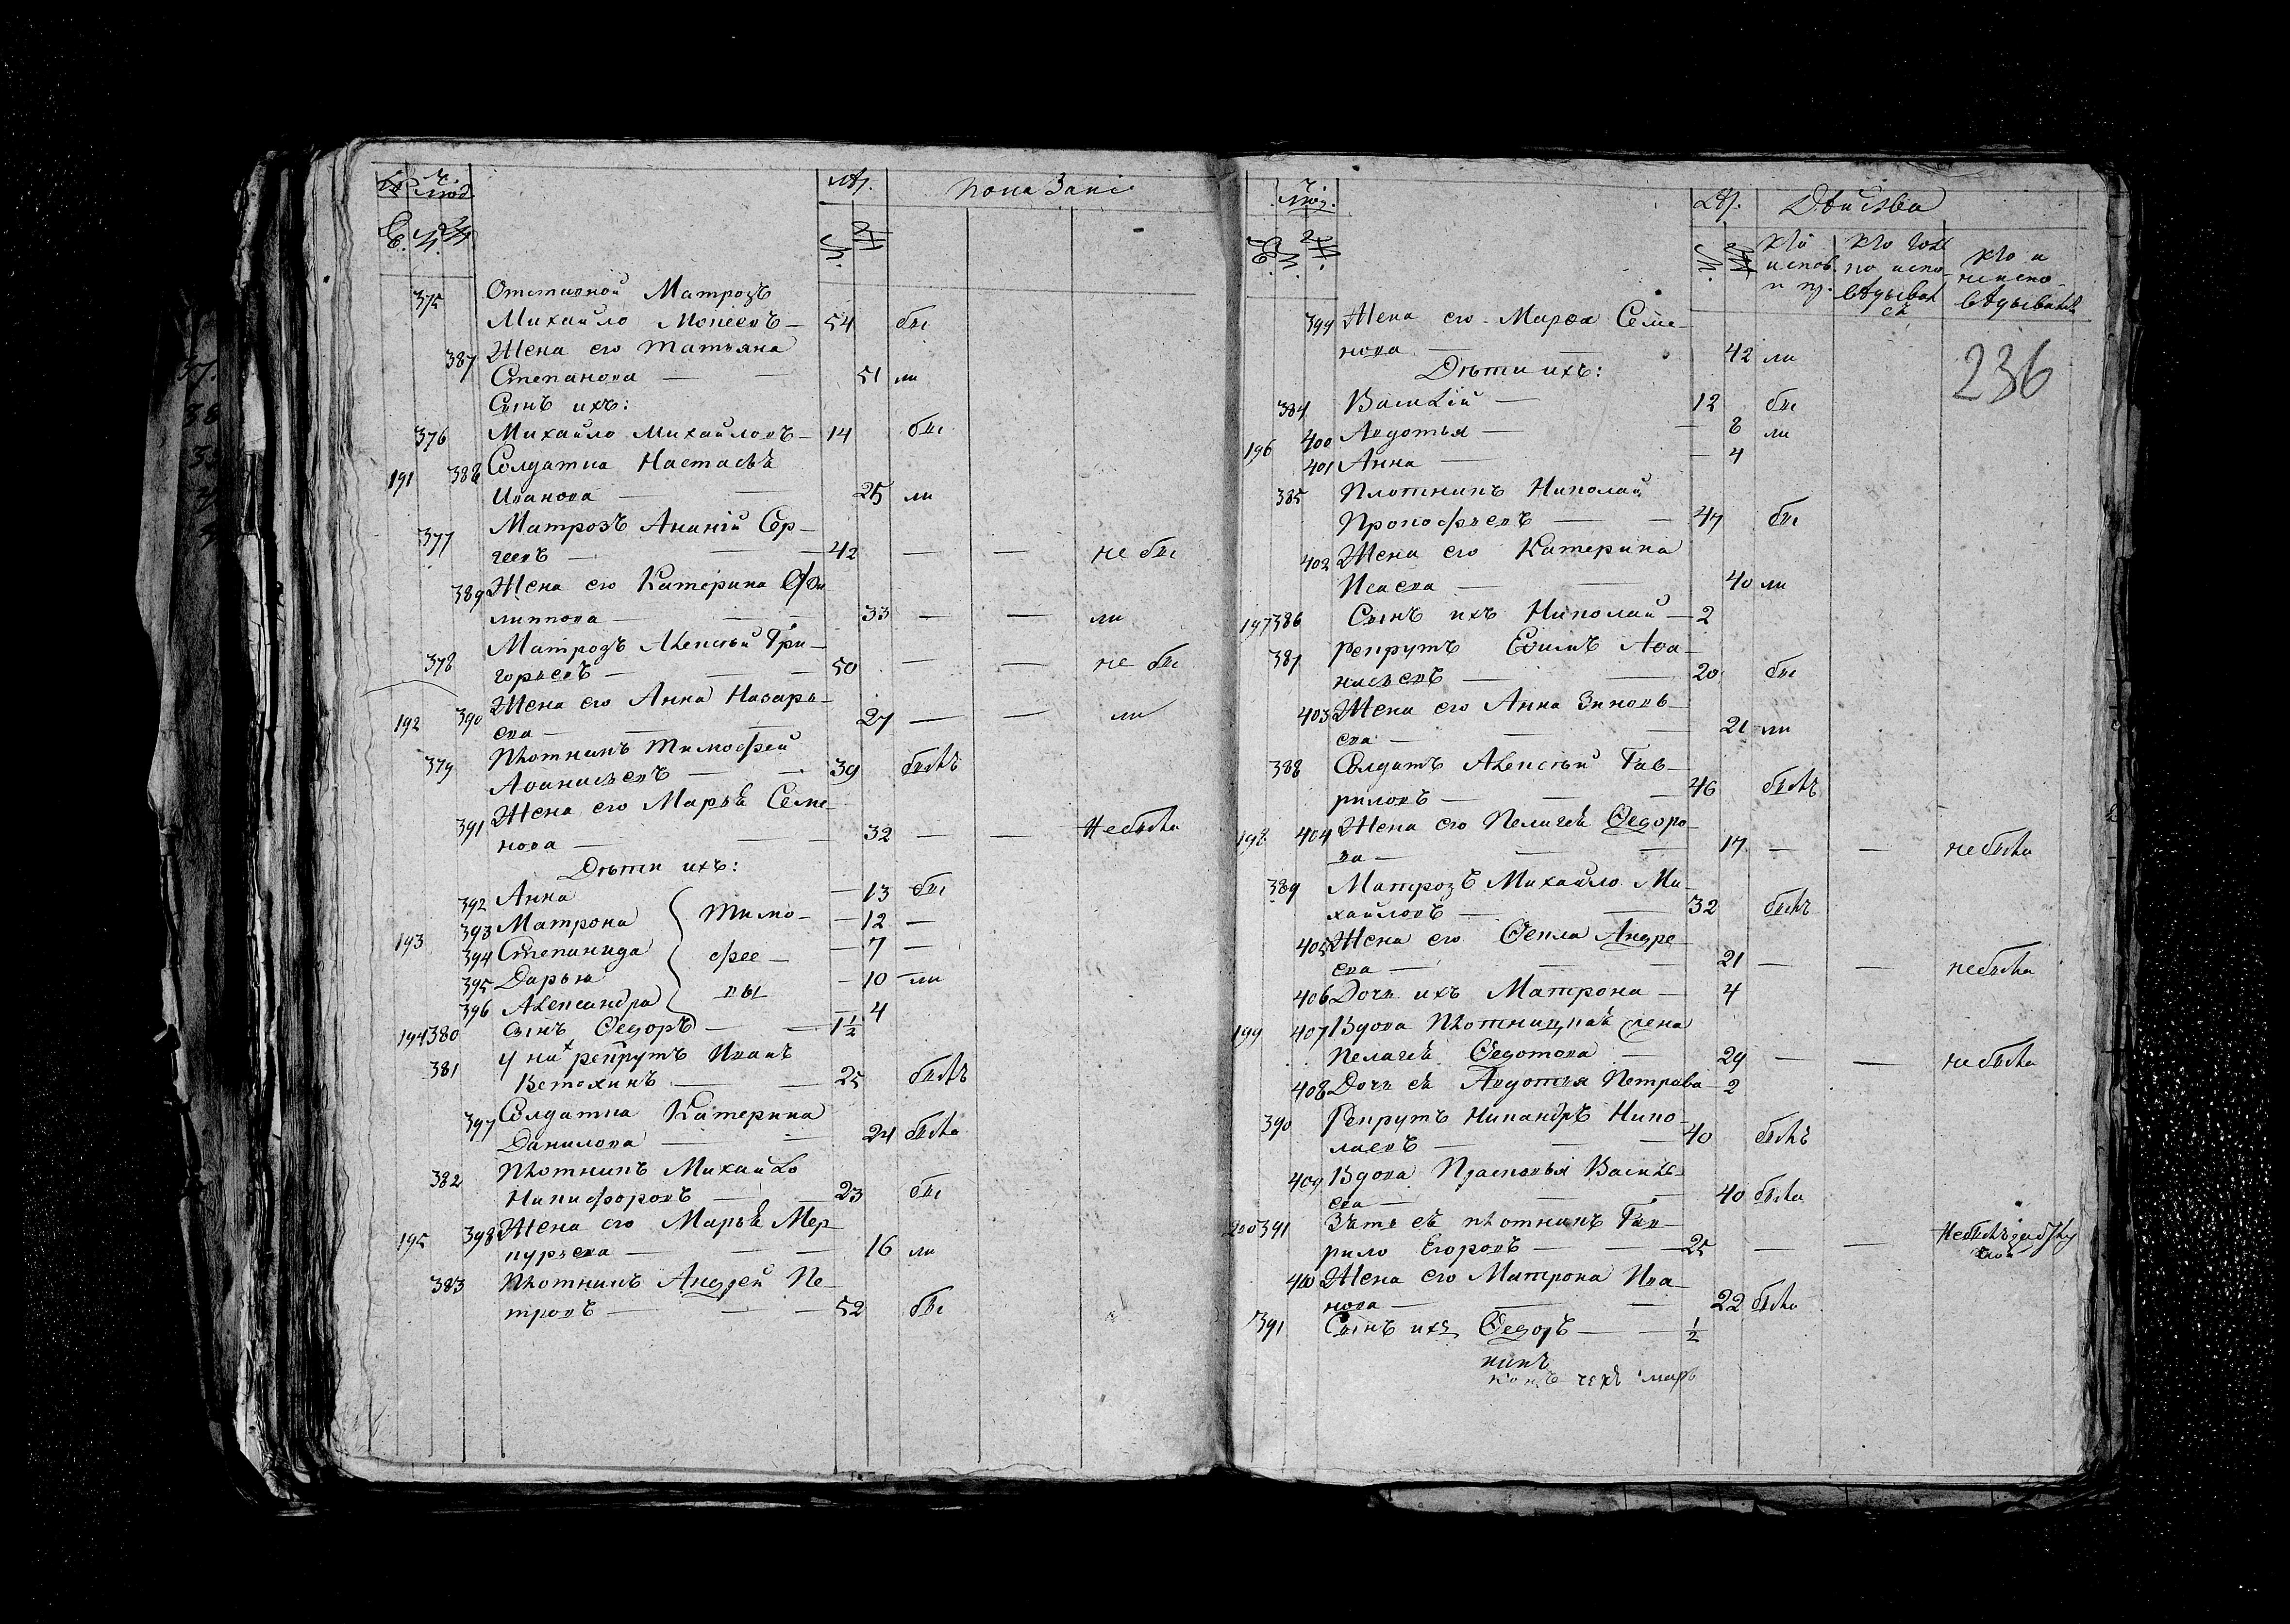 лѣт. показані
375 Отставной Матрозъ
Михайло Моисеевъ — 54 бы
387 Жена его Татьяна
Степанова — — 51 ли
Сынъ ихъ:
376 Михайло Михайловъ — 14 бы
191 388 Солдатка Настасья
Иванова — — 25 ли
377 Матрозъ Ананій Сер-
геевъ — — — 42 — — не бы
389 Жена его Катерина Фи
липпова — — 33 — — ли
378 Матрозъ Алексѣй Гри-
горьевъ — — — 50 — — не бы
192 390 Жена его Анна Назарь-
ева — — 27 — — ли
379 Плотникъ Тимофей
Аѳанасьевъ — — 39 былъ
391 Жена его Марья Семе-
нова — — — 32 — — Не была
Дѣти ихъ:
392 Анна — 13 бы
393 Матрона Тимо- — 12 —
193
394 Степанида фее- — 7 —
395 Дарья — 10 — ли
396 Александра вы — 4
194 380 сынъ Ѳедоръ — — 1 1/2
381 у них рекрутъ Иванъ
Ветохинъ — — 25 былъ
397 Солдатка Катерина
Данилова — — 24 была
382 Плотникъ Михайло
Никифоровъ — — 23 бы
195 398 Жена его Марья Мер-
курьева — — — 16 ли
383 Плотникъ Андрей Пе-
тровъ — — — 52 бы
ч. люд. лѣт. Дѣйства
кто испов. и пр.
кто токмо исповѣдывался
кто и не исповѣдывался
236
399 Жена его Марѳа Семе-
нова — — 42 ли
Дѣти ихъ:
384 Василій — 12 бы
196 400 Авдотья — — 8 ли
401 Анна — — 4
385 Плотникъ Николай
Прокофьевъ — — 47 бы
402 Жена его Катерина
Исаева — — 40 ли
197 386 Сынъ ихъ Николай — 2
387 рекрутъ Евимъ Аѳа-
насьевъ — — 20 бы
403 Жена его Анна Зиновь-
ева — — — 21 ли
388 Солдатъ Алексѣй Гав-
риловъ — — — 46 былъ
198 404 Жена его Пелагея Ѳедоро-
ва — — — 17 — — не была
389 Матрозъ Михайло Ми-
хайловъ — — 32 былъ
405 Жена его Ѳекла Андре-
ева — — — 21 — — не была
406 Дочь ихъ Матрона — 4
199 407 Вдова плотницкая жена
Пелагея Ѳедотова — 29 — — не была
408 Дочь ея Авдотья Петрова — 2
390 Рекрутъ Никандръ Нико-
лаевъ — — — 40 былъ
409 Вдова Прасковья Василь-
ева — — — 40 была
200 391 Зять ея плотникъ Гав-
рило Егоровъ — — — 25 — —
410 Жена его Матрона Ива-
нова — — — 22 была
391 Сынъ ихъ Ѳедоръ — — 1/2